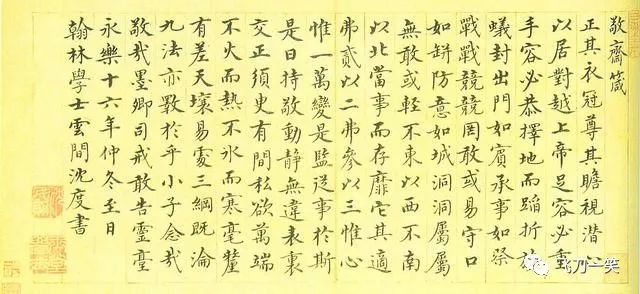 敬齋箴
正其衣冠尊其瞻視潛心
以居對越上帝足容必重
手容必恭擇地而蹈折旋
蟻封出門如賓承事如祭
戰戰兢兢罔敢或易守口
如缾防意如城洞洞屬屬
無敢或輕不東以西不南
以北當事而存靡它其適
弗貳以二弗參以三惟心
惟一萬變是監從事於斯
是日持敬動靜無違表裏
交正須臾有間私欲萬端
不火而熱不氷而寒毫釐
有差天壤易處三綱既淪
九法亦斁於乎小子念哉
敬哉墨卿司戒敢告靈臺
永樂十六年仲冬至日
翰林學士雲間沈度書
飞刀一笑